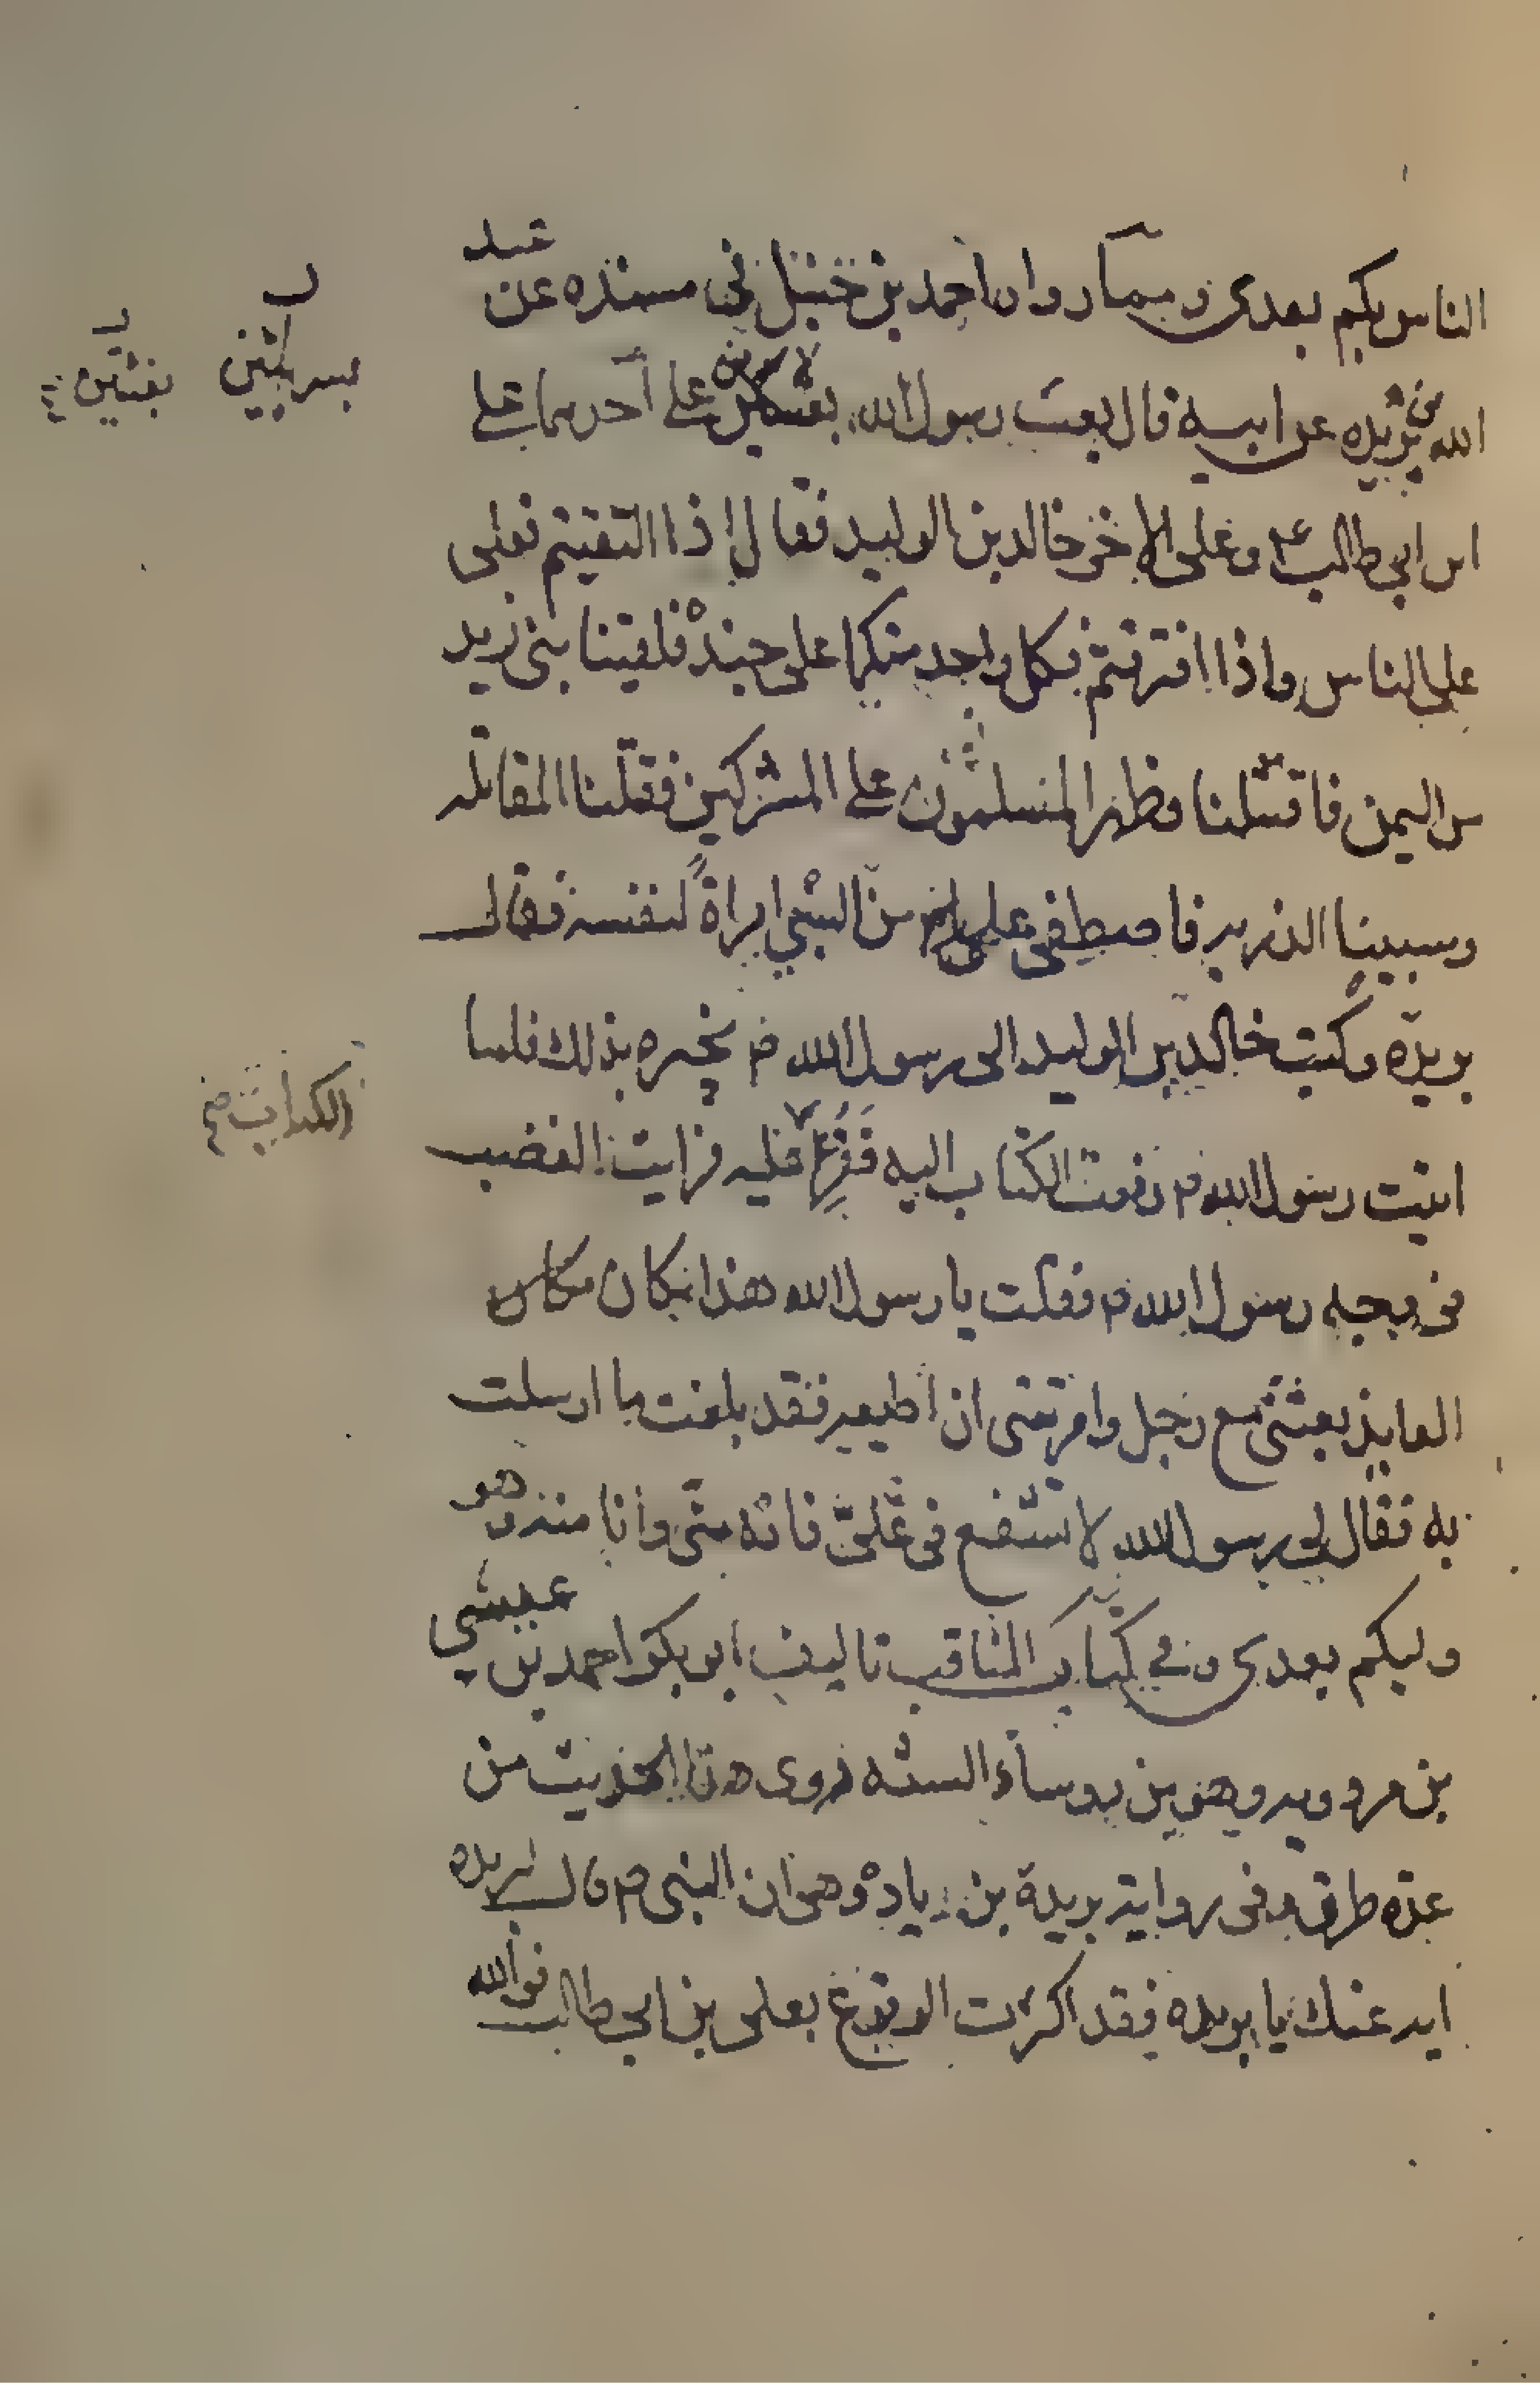 الناس بكم بعدى ومما رواه احمد بن حنبل فى مسنده عن عبد
الله بن بريده عن ابيه قال بعث رسول الله بعثين على احدهما على
ابن ابى طالب ع وعلى الاخر خالد بن الوليد فقال اذا التقيتم فعلى
على الناس واذا افترقتم فكل واحد منكما على جنده فلقينا بنى زيد
من اليمن فاقتتلنا وظهر المسلمون على المشركين فقتلنا المقاتله
وسبينا الذريه فاصطفى على من السبى امراة لنفسه فقال
بريدة وكتب خالد بن الوليد الى رسول الله ص يخبره بذلك فلما
اتيت رسول الله ص دفعت الكتاب اليه فقرئ عليه فرايت الغضب
فى وجه رسول الله ص فقلت يا رسول الله هذا مكان
العايذ بعثتنى مع رجل وامرتنى ان اطيعه فقد بلغت ما ارسلت
به فقال لى رسول الله لا تقع فى علىّ فانه منّى وانا منه وهو
وليكم بعدى وفى كتاب المناقب تاليف ابو بكر احمد بن
بن مردويه وهو من روساء السنه روى هذا الحديث من
عدة طرق وفى رواية بريدة زيادة وهو ان النبى ص قال لبريده
ايه عنك يا بريده فقد اكثرت الوقوع بعلى بن ابى طالب فوالله
بسريتين
بعثين
الكتابة